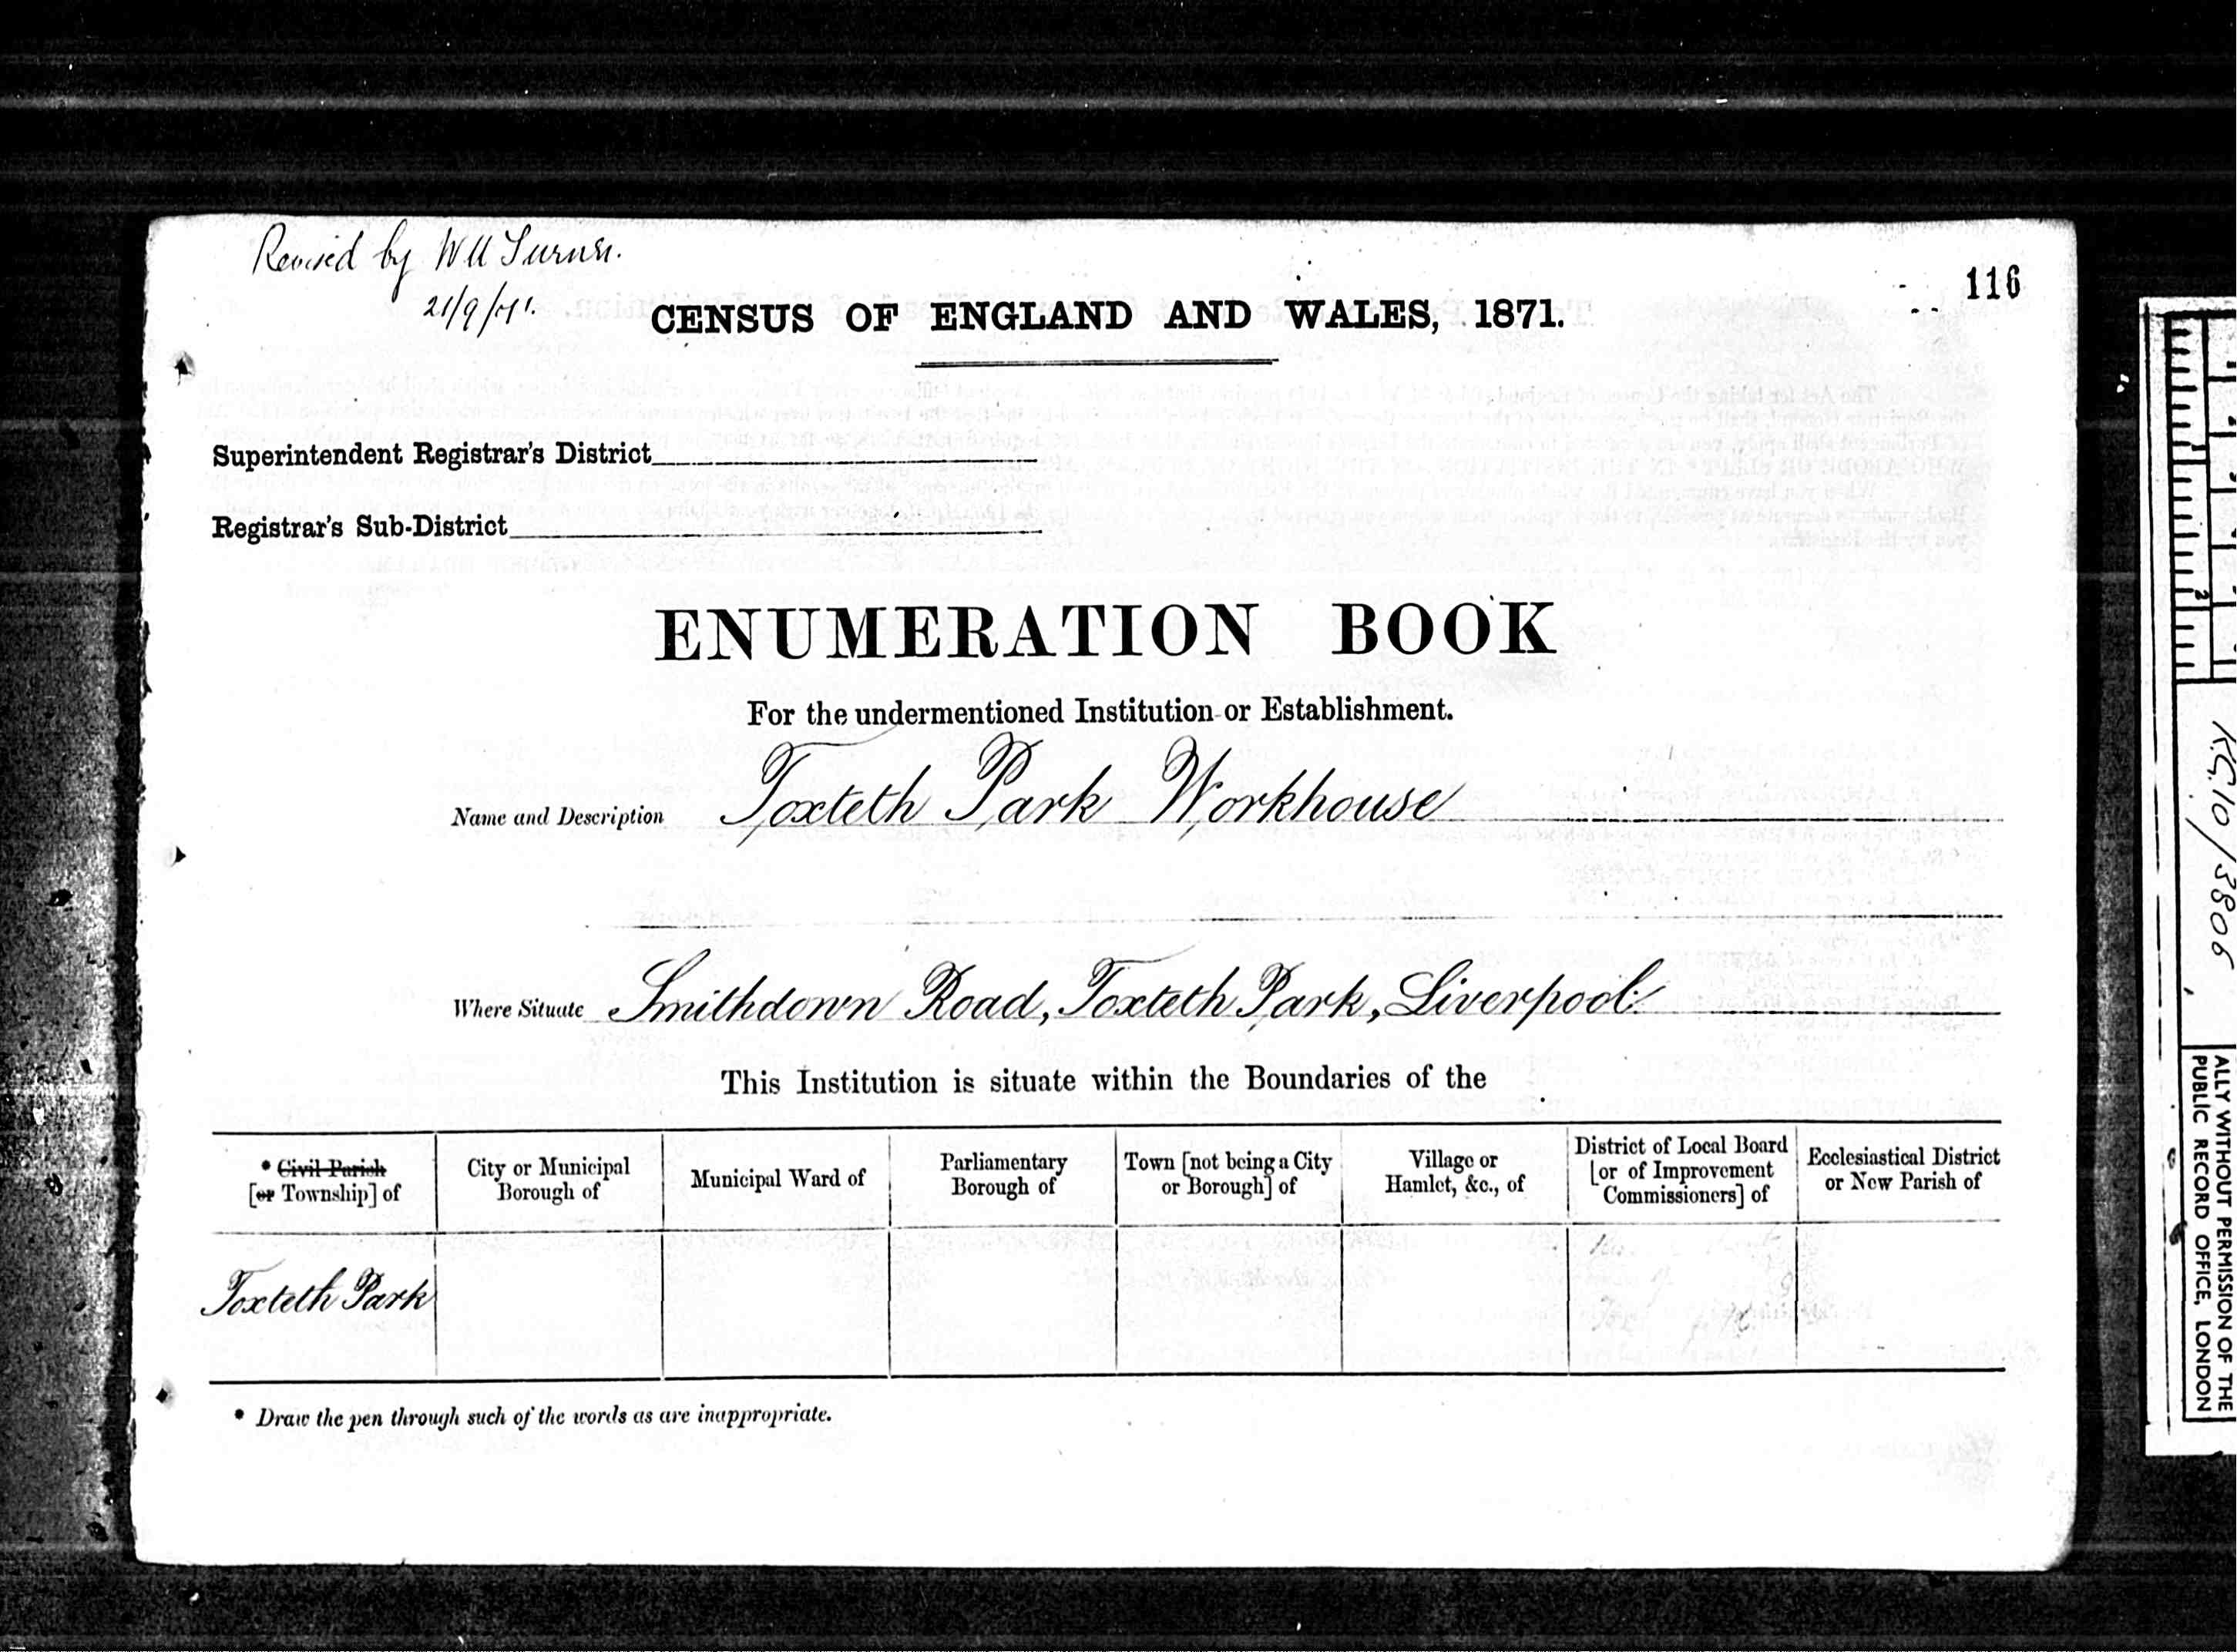 Revised by W H Turner.
21/9/71.
116
CENSUS OF ENGLAND AND WALES, 1871.
Superintendent Registrar's District
Registrar's Sub-District
ENUMERATION BOOK
For the undermentioned Institution or Establishment.
Name and Description Toxteth Park Workhouse
Where Situate Smithdown Road, Toxteth Park, Liverpool.
This Institution is situate within the Boundaries of the
* Civil Parish
[or Township] of
City or Municipal
Borough of
Municipal Ward of
Parliamentary
Borough of
Town [not being a City
or Borough] of
Village or
Hamlet, &c., of
District of Local Board
[or of Improvement
Commissioners] of
Ecclesiastical District
or New Parish of
Toxteth Park
* Draw the pen through such of the words as are inappropriate.
2
1
R.G. 10/3806
ALLY WITHOUT PERMISSION OF THE
PUBLIC RECORD OFFICE, LONDON